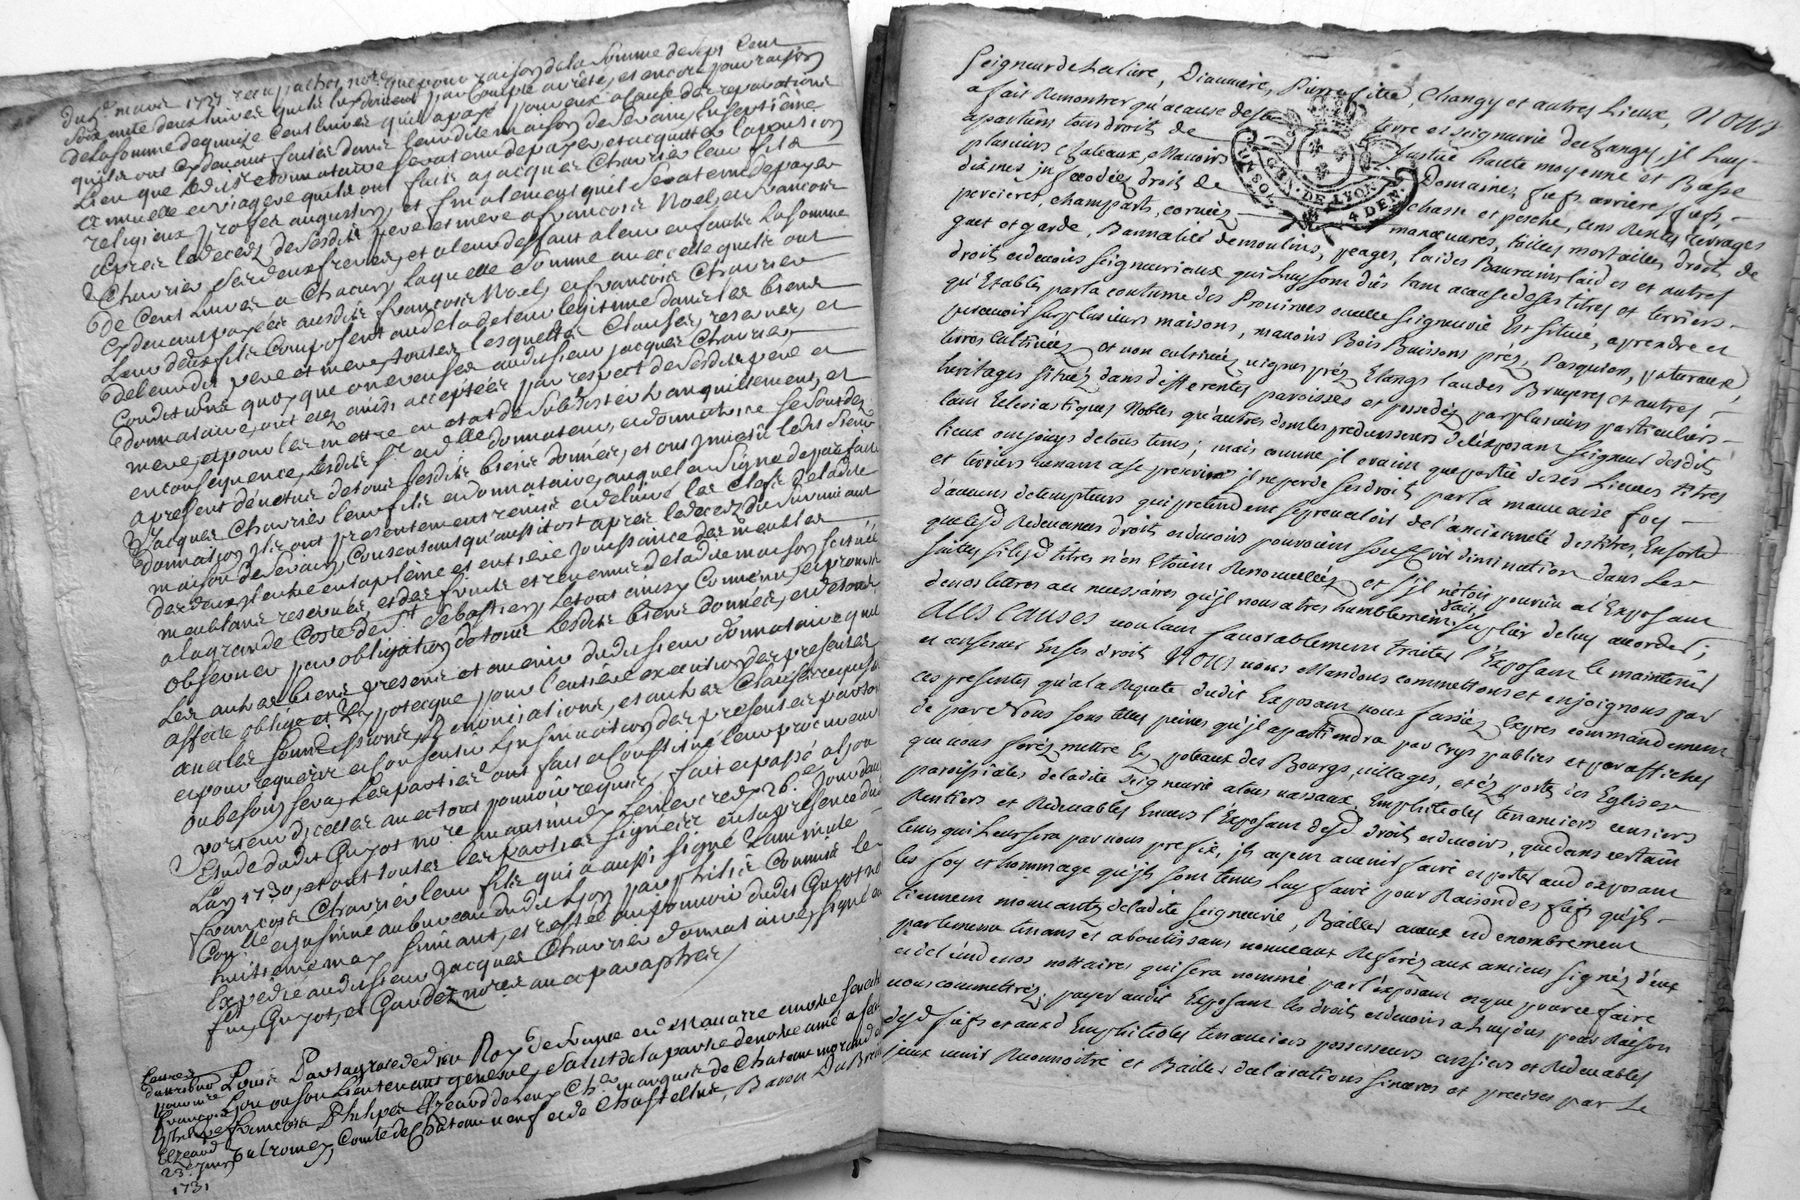 du 1er mars 1727 receu pather nore que pour raison de la somme de sept cent
soixante deux livres quils luy doivent par compte arrêté, et encore pour raison
de la somme de quinze cent livres quil a payé pour eux a cause des reparations
quils ont cydevant faites dans leur dite maison de Sevam, En septieme
Lieu que led. sr donnataire sera tenu de payer et acquitter la pension
annuelle et viagere quils ont faite a Jacques Chavrier leur fils
religieux profes augustin, et finalement quil sera tenu de payer
apres le decez de sesdits pere et mere a francois Noel, et francois
Chavrier ses deux freres, et a leur deffaut a leurs enfants La somme
de Cent Livres a Chacun laquelle somme avec celle quils ont
Cydevant payée ausdits francois Noel, et francois Chavrier
Leurs dits fils Composent audela de leur legitime dans les biens
de leursdits pere et mere, toutes lesquelles Clauses, reserves, et
Conditions quoy que onereuses audit sieur Jacques Chavrier
donnataire, ont eté ainsi acceptées par respect de sesdits pere et
mere, et pour les mettre en etat de subsister tranquillement, et
en consequence, lesdits sr et dlle donnateurs, et donnatrice se sont dez
apresent demettus de tous lesdits biens donnés, et ont investi ledit sieur
Jacques Chavrier leur fils et donnataire, auquel en signe de parfaite
donnation ils ont presentement remis et delivré les Clefs de la dite
maison de Sevam, Consentant qu'aussitost apres le decez du survivant
des deux il entre en pleine et entiere jouissance des meubles
meublans reservés, et des fruits et revenus de ladite maison scituée
a la grande Coste de St Sebastien, le tout ainsy Convenu, et promis
observer par obligation de tous lesdits biens donnés, et de tous
les autres biens presens et avenir dudit sieur donnataire quil
affecte oblige et hypotecque pour l'entiere execution des presentes
avec les soumissions, renonciations, et autres Clauses requises
et pour requerir et consentir l'insinuation des presentes partout
ou besoin sera, les parties ont fait et Constitué leur procureur
porteur d'icelles avec tout pouvoir requis, fait et passé a lyon
Etude dudit Guyot nore avant midy Le mercredy 26e jour d'avril
L'an 1730, et ont toutes les parties signées en la presence dudit
francois Chavrier leur fils qui a aussi signé La minute
Conlle et insinué au bureau dudit Lyon par philis Commis le
huitieme may suivant, et restée au pouvoir dudit Guyot nore
Expedié audit sieur Jacques Chavrier donnataire, signé
Guyot, et Gaudez nores avec paraphes
Lettres
23e juin
1731
Louis Par la grace de dieu Roy de france et de Navarre a notre senechal
Lyon ou son Lieutenant general, Salut de la partie de notre amé et feal
francois Philipes Elzeard de Levy Chr marquis de Chateaumorand
Valromey, Comte de Chateauneuf et de Chastellus, Baron
Seigneur de La Live, Diauviere, Pierrefitte, Changy et autres Lieux, NOUS
a fait Remontrer qu'a cause de sa terre et seigneurie de Changy, jl Luy
apartiens tous droit de Justice haute moyenne et Basse
plusieurs Chateaux, Manoirs Domaines, fiefs, arriere fiefs,
dixmes jnfeodéez, droit de Chasse et pesche, Cens Rentes Terrages
percieres, champarts, corvées manœuvres, tailles mortailles, droit de
guet et garde, Bannalité de moulins, peages, laides Bauvains, laides et autres
droits et devoirs seigneuriaux qui Luy sont dûs tant a cause de ses titres et terriers
qu'Etablis par la coutume des Provinces ou elle seigneurie Est situé, a prendre et
percevoir sur plusieurs maisons, manoirs Bois Buissons prez, Pasquiers, patureaux,
terres Cultivéez et non cultivéez vignes prez Etangs landes Bruyeres et autres
heritages situéz dans differentes paroisses et possedéz par plusieurs particuliers
tant Eclesiastiques Nobles qu'autres dont les predecesseurs de l'Exposant seigneurs desdits
lieux ont jouys de tous tems; mais comme jl craint que partie de ses Lieves titres
et terriers venant a se prescrire jl ne perde ses droits par la mauvaise foy
d'aucuns detempteurs qui pretendent se prevaloir de l'ancienneté des titres, En sorte
que lesd Redevances droits et devoirs pouroient souffrir diminution dans Les
suites si lesd titres n'en Etoient Renouvelléz et s'jl n'étoit pourvu a l'Exposant
de nos lettres au necessaires qu'jl nous a tres humblement fait suplier de luy accorder;
AUX CAUSES voulant favorablement traiter l'Exposant le maintenir
et conserver En ses droits NOUS vous Mandons commettons et enjoignons par
ces presentes qu'a la Requete dudit Exposant vous fassiéz Expres commandement
de par Nous sous telles peines qu'jl apartiendra par crys publics et par affiches
que vous feréz mettre Ez poteaux des Bourgs, villages, et Ez portes des Eglises
paroissiales de ladite seigneurie a tous vassaux, Emphiteotes tenanciers censiers
Rentiers et Redevables Envers l'Exposant desd droits et devoirs, que dans certain
tems qui Leur sera par vous prefix, jls ayent a venir faire et porter aud exposant
les foy et hommage qu'jls sont tenus Luy faire pour Raison des fiefs qu'jls
tiennent mouvants de ladite seigneurie, Bailler aveux et denombrement
par tenants et aboutissans nouveaux Referéz aux anciens signéz d'eux
et de l'un de nos nottaires qui sera nommé par l'exposant et que pour ce faire
vous commettréz, payer audit Exposant les droits et devoirs a Luy dus pour Raison
desd fiefs et aux d Emphiteotes tenanciers possesseurs censiers et Redevables
jceux venir Reconnoitre et Bailler declarations sinceres et precises par Le
GEN. DE LYON
4 DEN.